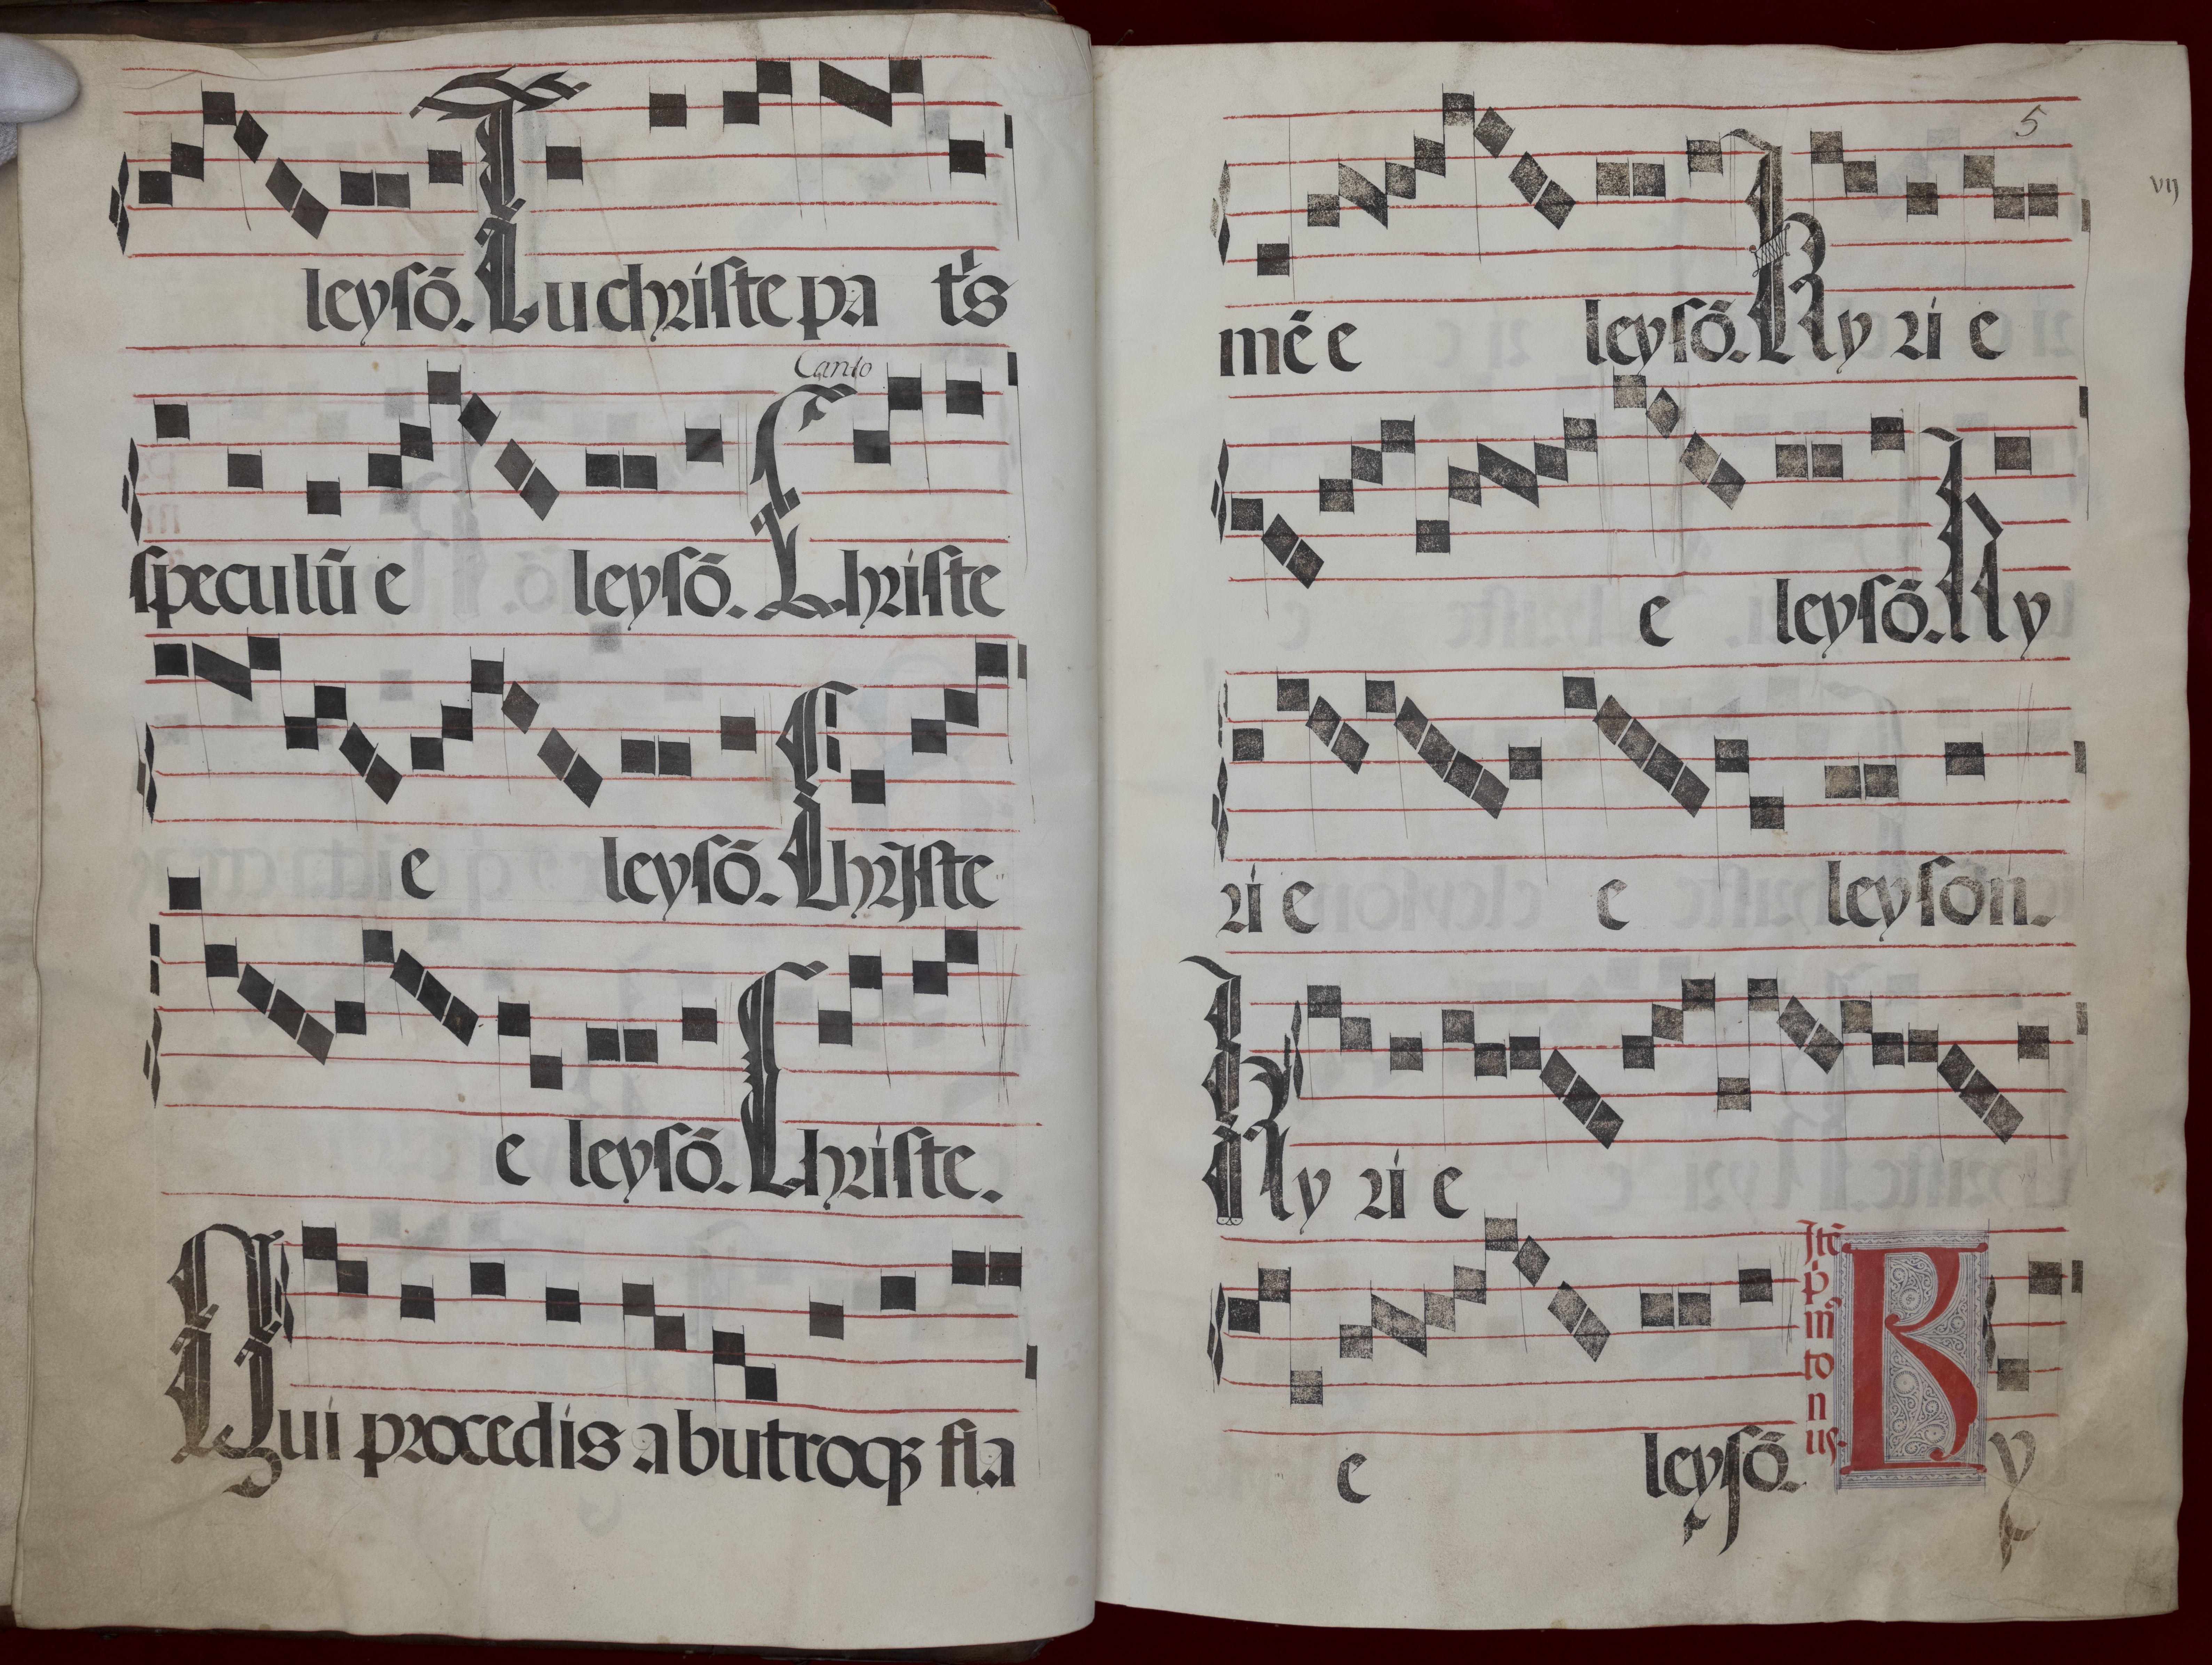 leysō. Tu christe pa tr̄s
Canto
speculū e leysō. Christe
e leysō. Christe
e leysō. Christe.
Qui procedis ab utroqꝫ fla
5
vij
mē e leysō. Ky ri e
e leysō. Ky
ri e e leyson.
Ky ri e
e leysō.
Itē
p̄
im̄
to
n
us.
Ky